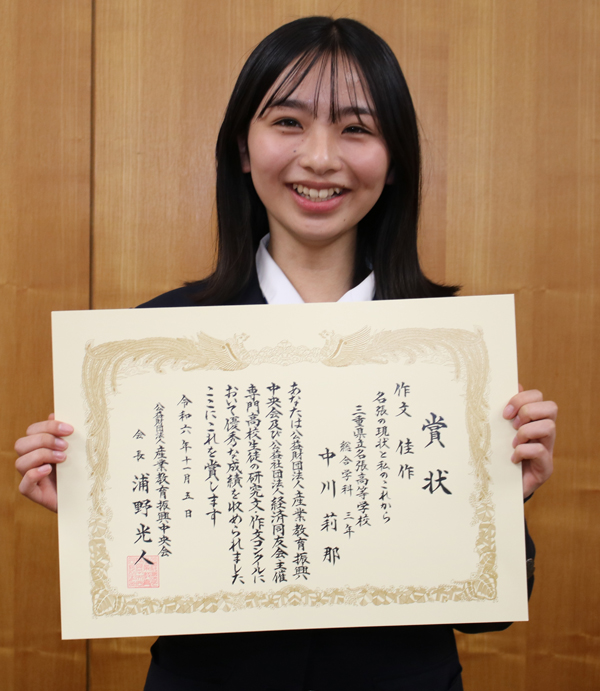 賞状
作文 佳作
名張の現状と私のこれから
三重県立名張高等学校
総合学科 三年
中川莉那
あなたは公益財団法人産業教育振興
中央会及び公益社団法人経済同友会主催
専門高校生徒の研究文・作文コンクールに
おいて優秀な成績を収められました
ここにこれを賞します
令和六年十一月五日
公益財団法人産業教育振興中央会
会長 浦野光人